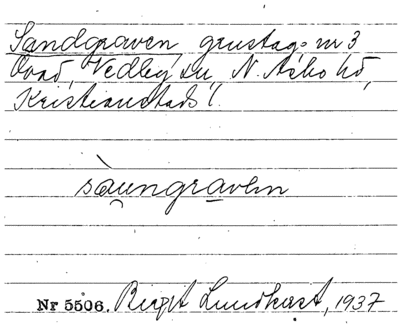 Sandgraven, grustag. nr 3
Vedby sn N. Åsbo hd,
Kristianstads l.
sàu̯ngravən
Nr 5506. Birgit Lundkvist, 1937